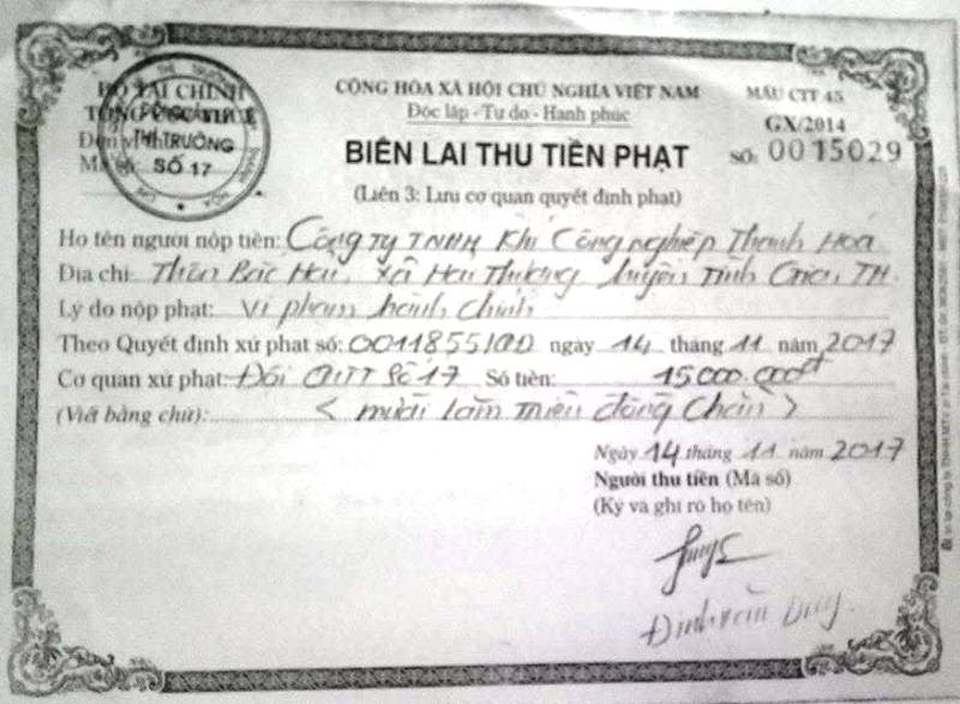 BỘ TÀI CHÍNH
TỔNG CỤC THUẾ
THỊ TRƯỜNG
SỐ 17
CỘNG HÒA XÃ HỘI CHỦ NGHĨA VIỆT NAM
Độc lập - Tự do - Hạnh phúc
MẪU CTT 45
GX/2014
BIÊN LAI THU TIỀN PHẠT
Số: 0015029
(Liên 3: Lưu cơ quan quyết định phạt)
Họ tên người nộp tiền: Công ty TNHH Khí Công nghiệp Thanh Hoá
Địa chỉ: Thôn Bắc xã huyện TH.
Lý do nộp phạt: Vi phạm hành chính
Theo Quyết định xử phạt số: 00118551QĐ ngày 14 tháng 11 năm 2017
Cơ quan xử phạt: Đội QLTT Số 17 Số tiền: 15000.000đ
(Viết bằng chữ): < mười lăm triệu đồng chẵn >
Ngày 14 tháng 11 năm 2017
Người thu tiền (Mã số)
(Ký và ghi rõ họ tên)
Đinh văn Duy